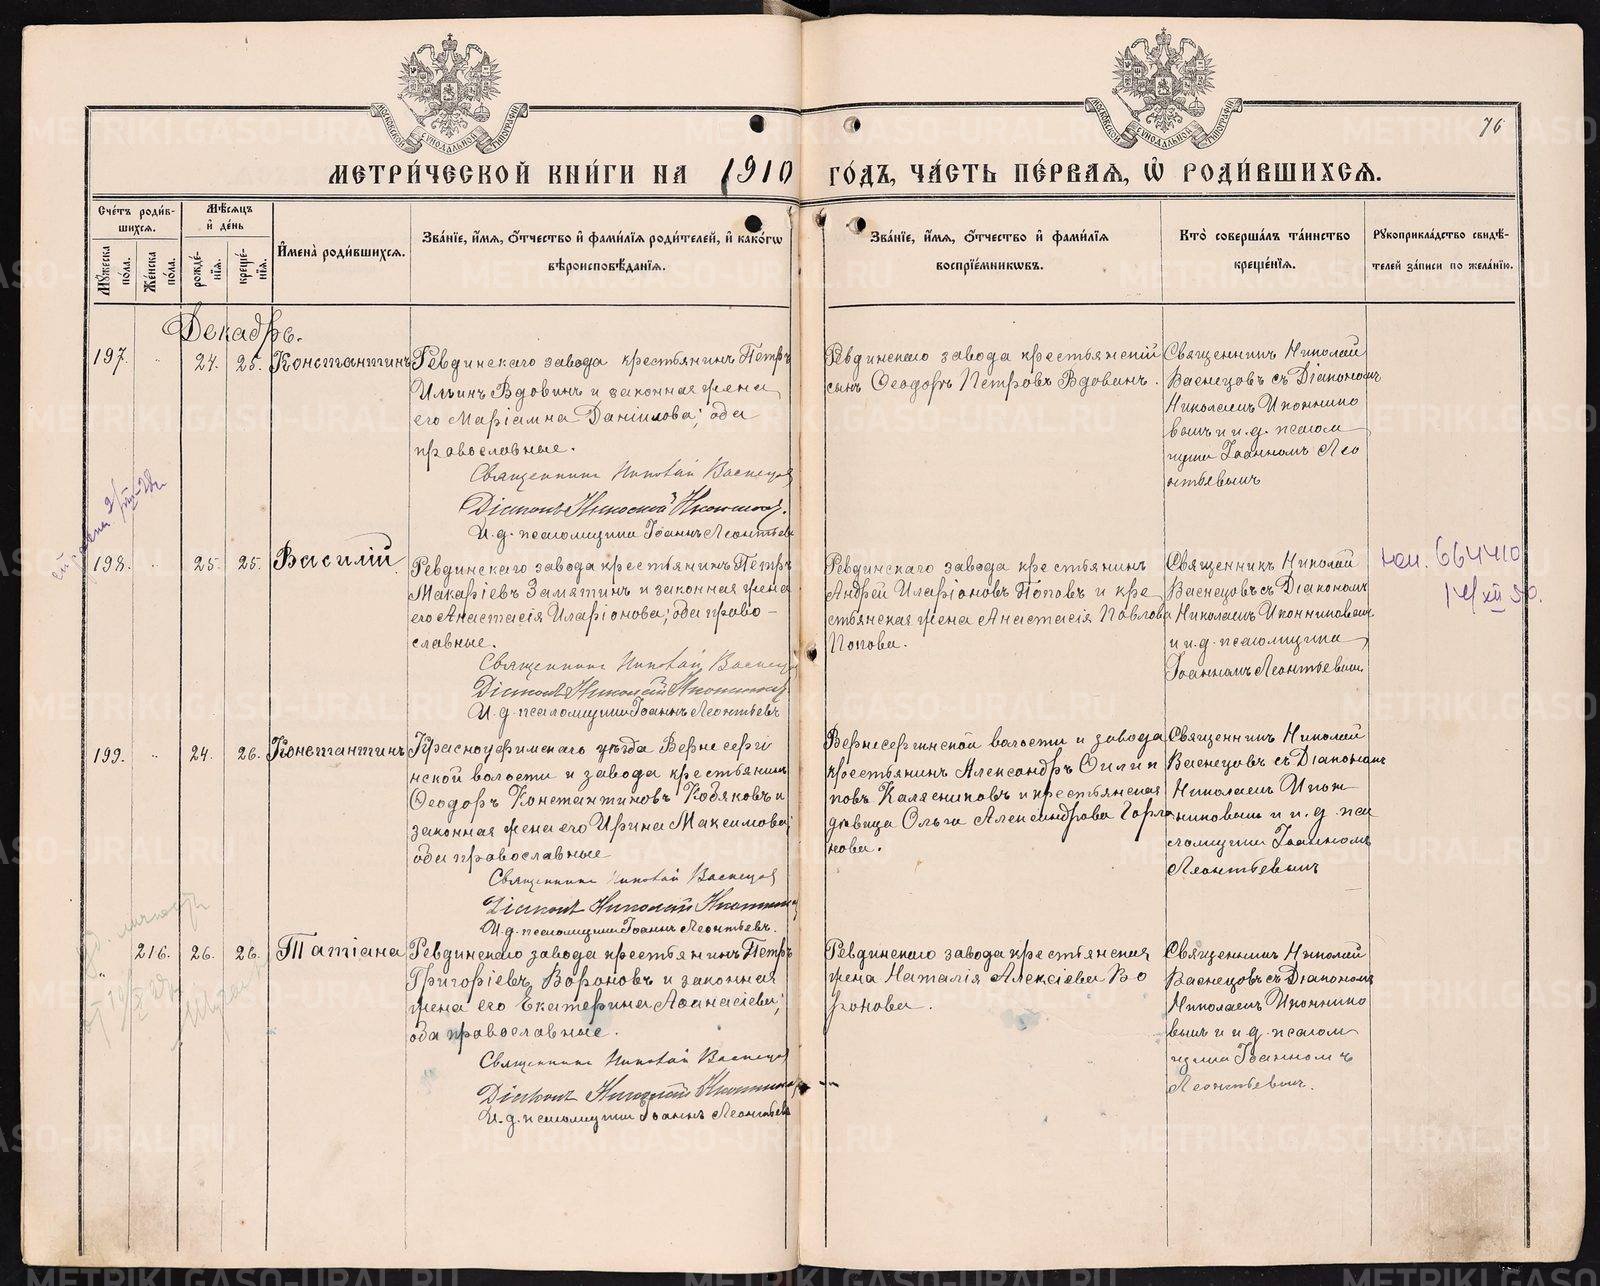 76
МЕТРИ́ЧЕСКОЙ КНИ́ГИ НА 1910 ГО́ДЪ, ЧА́СТЬ ПЕ́РВАЯ, Ѿ РОДИ́ВШИХСЯ.
Сче́тъ роди́в-
шихся.
Мѣ́сяцъ
и҆ де́нь
Му́жеска по́ла.
Же́нска по́ла.
рожде́-
нїѧ.
креще́-
нїѧ.
И҆мена̀ роди́вшихся.
Зва́нїе, и҆́мѧ, ѻ҆́тчество и҆ фами́лїѧ роди́телей, и҆ како́гѡ
вѣроисповѣ́данїѧ.
Зва́нїе, и҆́мѧ, ѻ҆́тчество и҆ фами́лїѧ
воспрїе́мникѡвъ.
Кто̀ соверша́лъ та́инство
креще́нїѧ.
Рꙋкоприкла́дство свидѣ́-
телей за́писи по жела́нїю.
Декабрь.
197. " 24. 25. Константинъ
Ревдинскаго завода крестьянинъ Петръ
Ильинъ Вдовинъ и законная жена
его Маріамна Даніилова; оба
православные.
Священникъ Николай Васнецов
Діаконъ Николай Иконников.
И.д. псаломщика Іоаннъ Леонтьев
Ревдинскаго завода крестьянскій
сынъ Ѳеодоръ Петровъ Вдовинъ.
Священникъ Николай
Васнецовъ съ Діакономъ
Николаемъ Иконнико
вымъ и и.д. псалом
щика Іоанномъ Лео
нтьевымъ
198. " 25. 25. Василій
Ревдинскаго завода крестьянинъ Петръ
Макаріевъ Замятинъ и законная жена
его Анастасія Иларіонова; оба право-
славные.
Священникъ Николай Васнецов
Діаконъ Николай Иконников
И.д. псаломщика Іоаннъ Леонтьевъ
Ревдинскаго завода крестьянинъ
Андрей Иларіоновъ Поповъ и кре
стьянская жена Анастасія Павлова
Попова.
Священникъ Николай
Васнецовъ съ Діакономъ
Николаемъ Иконниковымъ
и и.д. псаломщика
Іоанномъ Леонтьевымъ
664410
199. " 24. 26. Константинъ
Красноуфимскаго уѣзда Верхнесергі
нской волости и завода крестьянинъ
Ѳеодоръ Константиновъ Кобяковъ и
законная жена его Ирина Максимова;
оба православные
Священникъ Николай Васнецов
Діаконъ Николай Иконников
И.д. псаломщика Іоаннъ Леонтьевъ.
Верхнесергинской волости и завода
крестьянинъ Александръ Филип
повъ Калясниковъ и крестьянская
дѣвица Ольга Александрова Горла
нова.
Священникъ Николай
Васнецовъ съ Діакономъ
Николаемъ Икон
никовымъ и и.д. пса
ломщика Іоанномъ
Леонтьевымъ
" 216. 26. 26. Татіана
Ревдинскаго завода крестьянинъ Петръ
Григоріевъ Вороновъ и законная
жена его Екатерина Аѳанасіева;
оба православные.
Священникъ Николай Васнецов
Діаконъ Николай Иконников
И.д. псаломщика Іоаннъ Леонтьев
Ревдинскаго завода крестьянская
жена Наталія Алексіева Во
ронова.
Священникъ Николай
Васнецовъ съ Діакономъ
Николаемъ Иконнико
вымъ и и.д. псалом
щика Іоанномъ
Леонтьевымъ.
METRIKI.GASO-URAL.RU